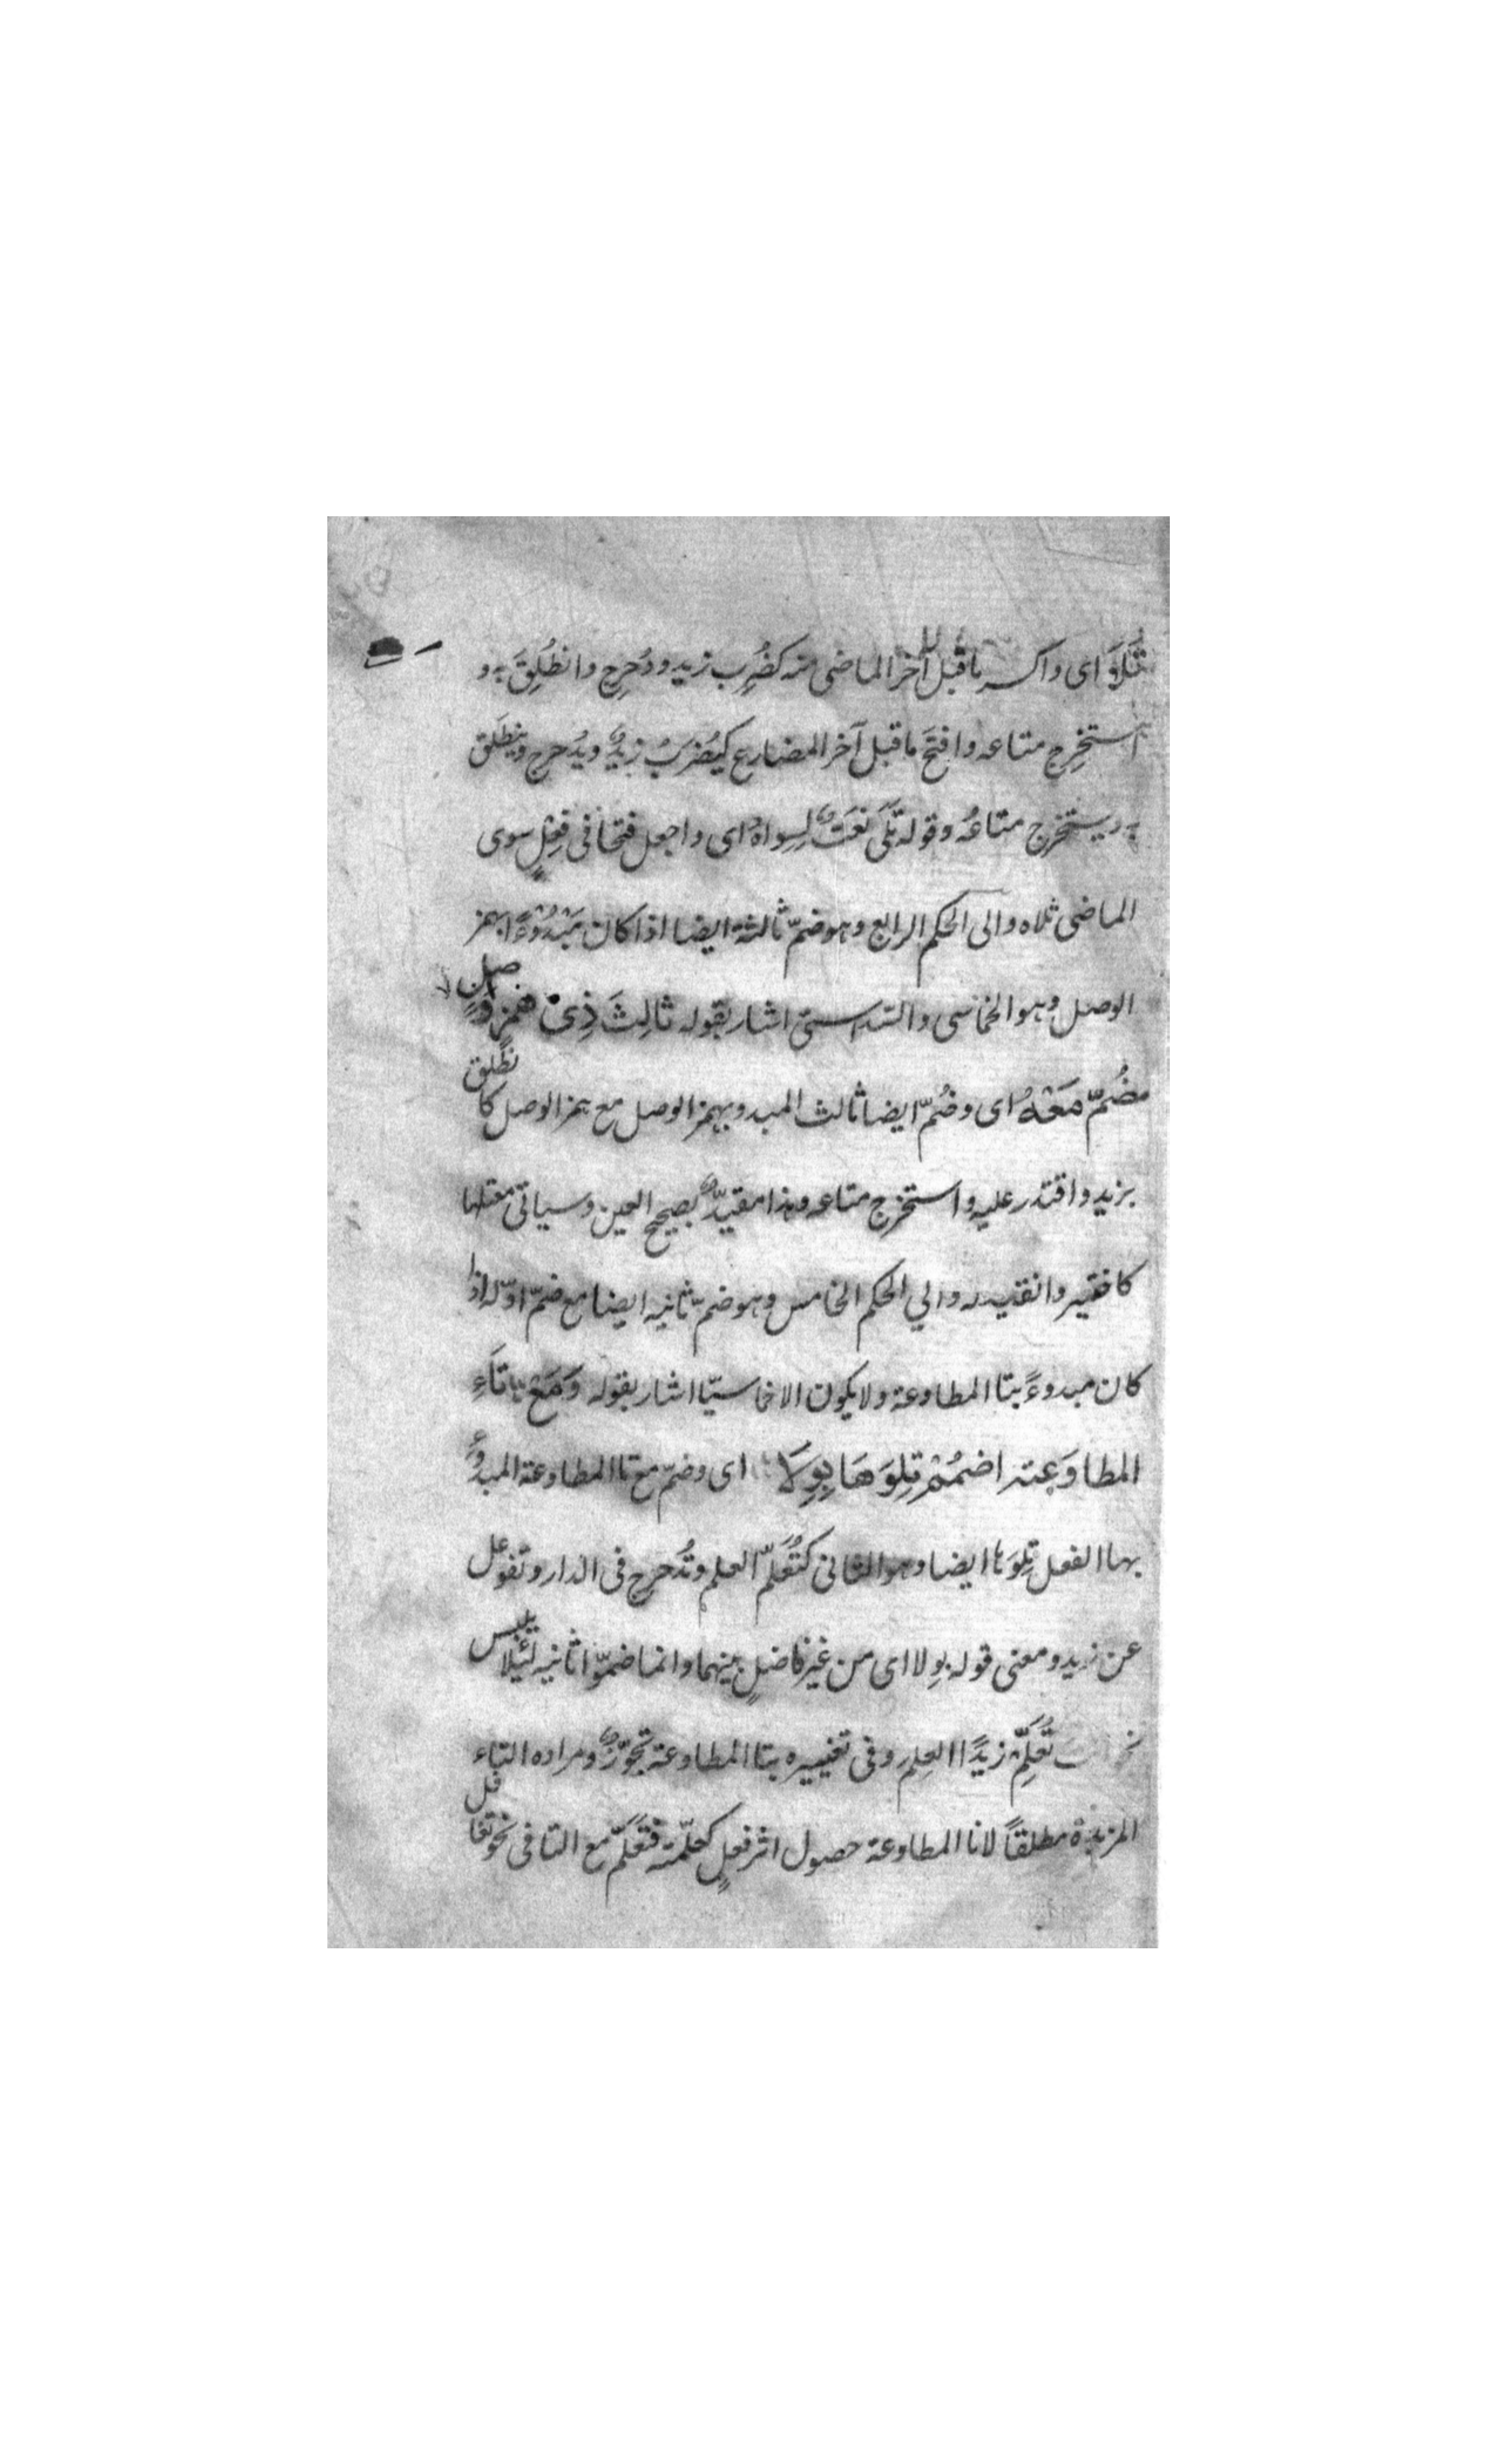 تَلَاوَ اى واكسر ما قبل آخر الماضى منه كضُرِب زيد ودُحرِج وانطُلِقَ به و
استخرِج متاعه وافتَح ما قبل آخر المضارع كيُضرَبُ زيدٌ ويُدحرج وينطَلَق
به ويستخرج متاعُه وقوله تَلَى نعتٌ لِسِواهُ اى واجعل فتحا فى فِعْلٍ سوى
الماضى تلاه والى الحكم الرابع وهو ضمّ ثالثه ايضا اذا كان مَبْدُوْءًا بهمز
الوصل وهو الخماسى والسداسى اشار بقوله ثالِثَ ذِى همزِ وصلٍ
ضُمَّ مَعْهُ اى وضُمّ ايضا ثالث المبدو بهمز الوصل مع همز الوصل كانطُلق
بزيد واقتدر عليه واستخرج متاعه وهذا مقيدٌ بصحيح العين وسياتى معتلها
كاختير وانقيد له والي الحكم الخامس وهو ضمّ ثانيه ايضا مع ضمّ اوّله اذا
كان مبدوءً بتا المطاوعة ولا يكون الا خماسيّا اشار بقوله وَمَعْ تَاءِ
المطاوَعة اضمُمْ تِلوَهَا بِوِلَا اى وضمّ مع تا المطاوعة المبدوّء
بها الفعل تِلوَها ايضا وهو الثانى كتُعُلّم العلم وتُدُحرِج فى الدار وتغوفل
عن زيد ومعنى قوله بِولا اى من غير فاصلٍ بينهما وانما ضمّوا ثانيه لئيلا يلتبس
تُعَلِّمُ زيدًا العِلم وفى تعبيره بتا المطاوعة تجوّزٌ ومراده التاء
المزيدة مطلقاً لانا المطاوعة حصول اثر فعلٍ كعلّمته فتعَلَّم مع التا فى نحو تغافل